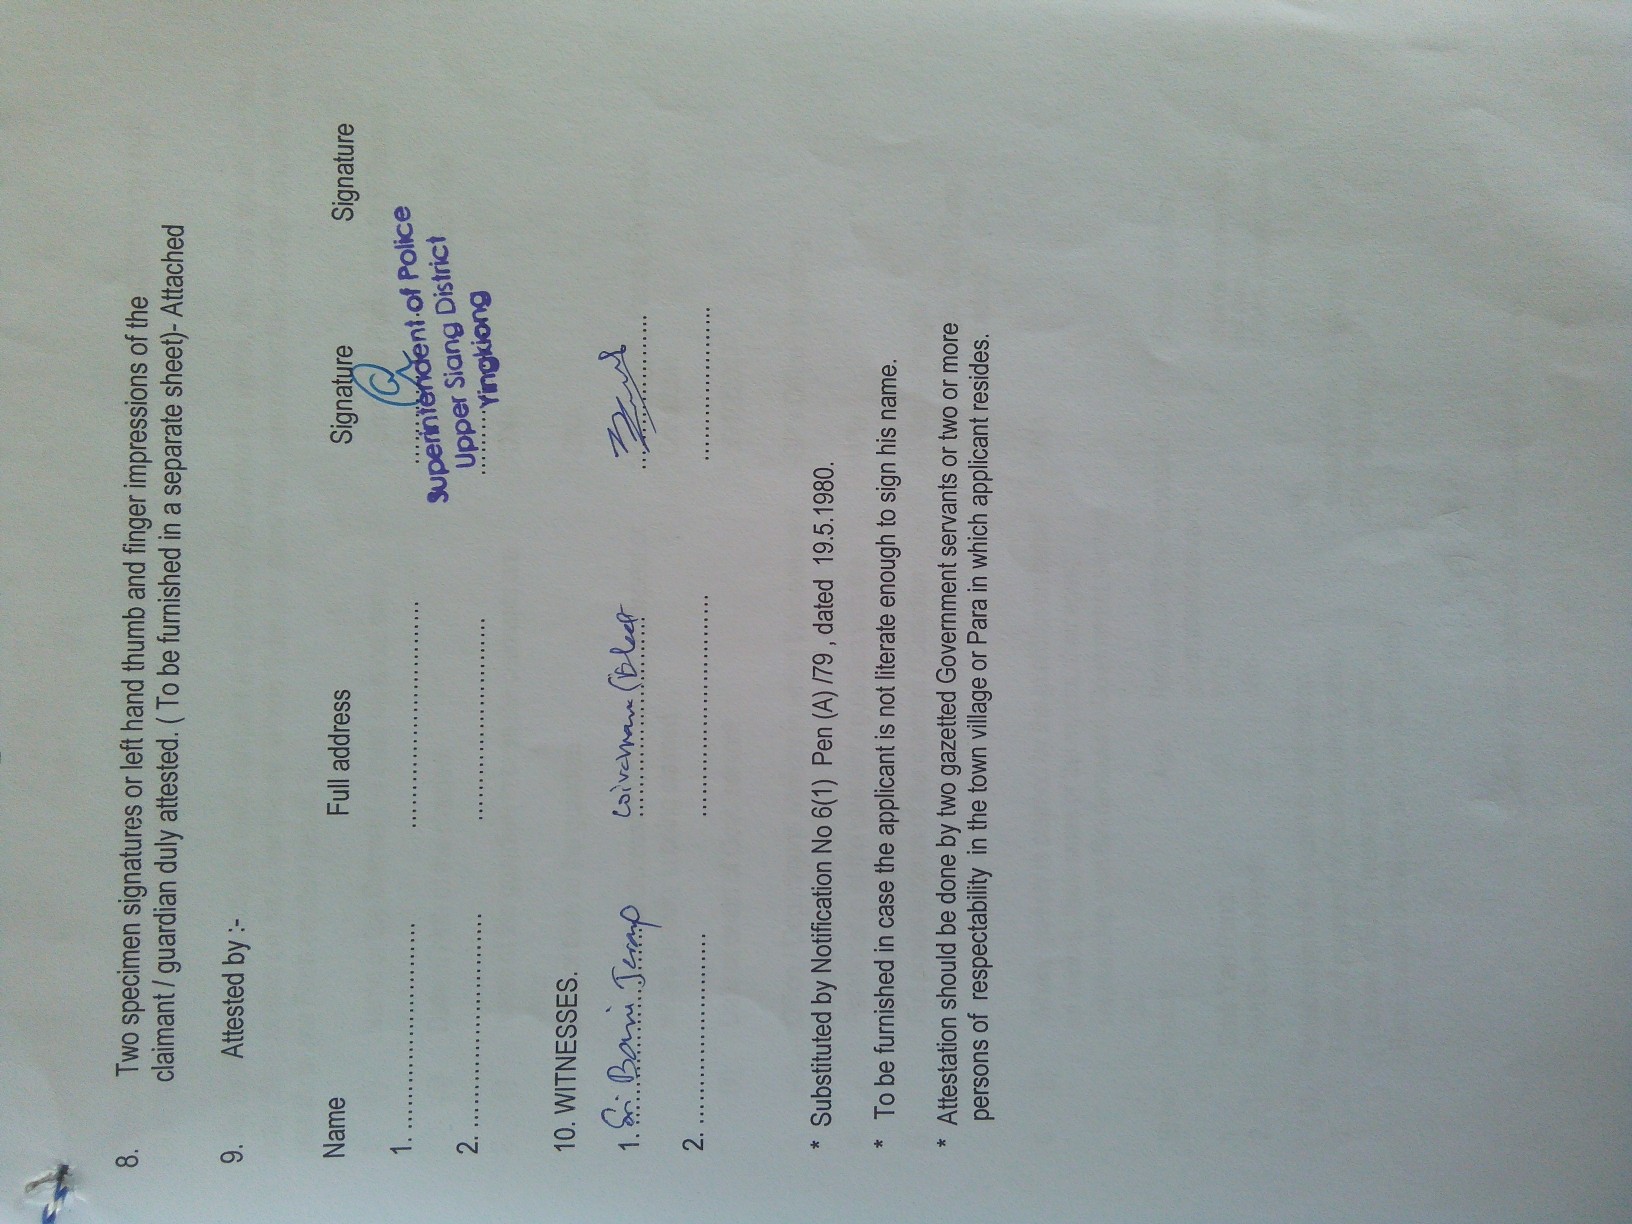 8. Two specimen signatures or left hand thumb and finger impressions of the
claimant / guardian duly attested. ( To be furnished in a separate sheet)- Attached
9. Attested by :-
Name Full address Signature Signature
1. ........................... ............................... ...............
Superintendent of Police
Upper Siang District
2. ............................. ............................ ...............
Yingkiong
10. WITNESSES.
1. Sri Bani
2. ........................... ............................... .....................
* Substituted by Notification No 6(1) Pen (A) /79 , dated 19.5.1980.
* To be furnished in case the applicant is not literate enough to sign his name.
* Attestation should be done by two gazetted Government servants or two or more
persons of respectability in the town village or Para in which applicant resides.